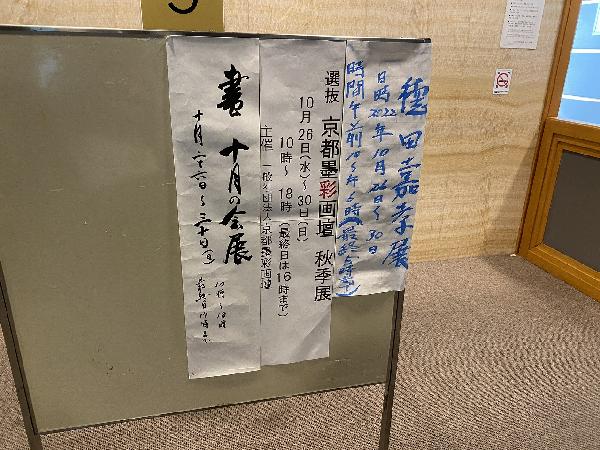 穂田嘉孝展
日時2022年10月26日〜30日
選抜 京都墨彩画壇 秋季展
10月26日(水)〜30日(日)
10時〜18時(最終日は16時まで)
主催 一般社団法人京都墨彩画壇
書 十月の会展
十月二十六日〜三十日(日)
10時〜18時
5